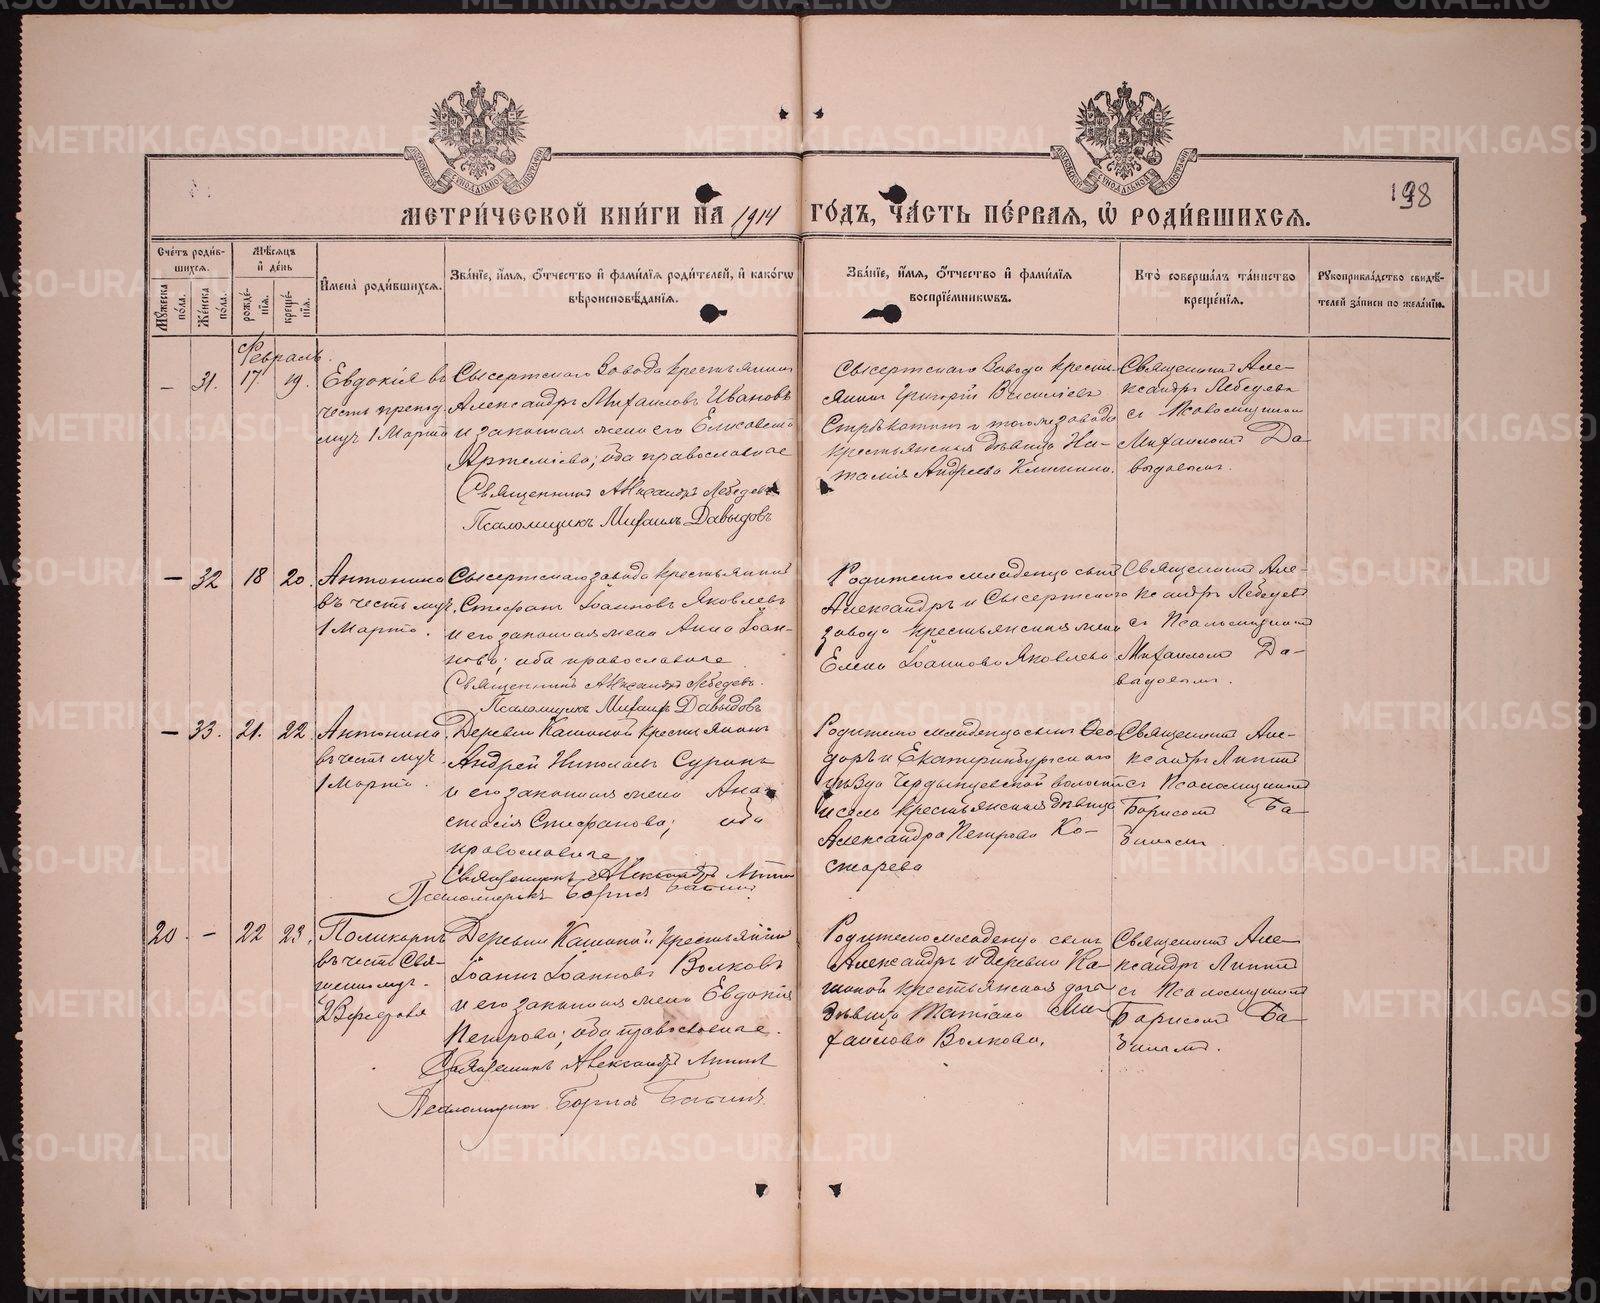 METRIKI.GASO-URAL.RU
198
МЕТРИ́ЧЕСКОЙ КНИ́ГИ НА 1914 ГО́ДЪ, ЧА́СТЬ ПЕ́РВАЯ, Ѡ҆ РОДИ́ВШИХСЯ.
Сче́тъ роди́вшихся.
Мꙋ́жеска по́ла.
Же́нска по́ла.
Мѣ́сяцъ и҆ де́нь
рожде́нїя.
креще́нїя.
И҆мена̀ роди́вшихся.
Зва́нїе, и҆́мя, ѻ҆́тчество и҆ фами́лїя роди́телей, и҆ како́гѡ вѣроисповѣ́данїя.
Зва́нїе, и҆́мя, ѻ҆́тчество и҆ фами́лїя воспрїе́мниковъ.
Кто̀ соверша́лъ та́инство креще́нїя.
Рꙋкоприкла́дство свидѣ́телей за́писи по жела́нїю.
Февраль.
— 31. 17. 19.
Евдокія въ
честь препод.
муч. 1 Марта
Сысертскаго Завода крестьянинъ
Александръ Михаиловъ Ивановъ
и законная жена его Елисавета
Артеміева; оба православные
Священникъ Александръ Лебедевъ
Псаломщикъ Михаилъ Давыдовъ
Сысертскаго Завода кресть-
янинъ Григорій Василіевъ
и того же завода
крестьянская дѣвица На-
талія Андреева
Священникъ Але-
ксандръ Лебедевъ
съ Псаломщикомъ
Михаиломъ Да-
выдовымъ.
— 32 18 20.
Антонина
въ честь муч.
1 Марта.
Сысертскаго завода крестьянинъ
Стефанъ Іоанновъ Яковлевъ
и его законная жена Анна Іоан-
нова; оба православные
Священникъ Александръ Лебедевъ.
Псаломщикъ Михаилъ Давыдовъ
Родителю младенца сынъ
Александръ и Сысертскаго
завода крестьянская жена
Елена Іоаннова Яковлева
Священникъ Але-
ксандръ Лебедевъ
съ Псаломщикомъ
Михаиломъ Да-
выдовымъ.
— 33. 21. 22.
Антонина
въ честь муч.
1 Марта.
Деревни Кашиной крестьянинъ
Андрей Николаевъ Суринъ
и его законная жена Ана-
стасія Стефанова; оба
православные
Священникъ Александръ
Псаломщикъ Борисъ Бабинъ
Родителю младенца сынъ Ѳео-
доръ и Екатеринбургскаго
уѣзда волости
и села крестьянская дѣвица
Александра Петрова Ко-
старева
Священникъ Але-
ксандръ
съ Псаломщикомъ
Борисомъ Ба-
бинымъ
20. — 22 23.
Поликарпъ
въ честь Свя-
щенномуч.
23 Февраля
Деревни Кашиной крестьянинъ
Іоаннъ Іоанновъ Волковъ
и его законная жена Евдокія
Петрова; оба православные.
Священникъ Александръ
Псаломщикъ Борисъ Бабинъ
Родителю младенца сынъ
Александръ и деревни Ка-
шиной крестьянская дочь
дѣвица Татіана Ми-
хаилова Волкова.
Священникъ Але-
ксандръ
съ Псаломщикомъ
Борисомъ Ба-
бинымъ.